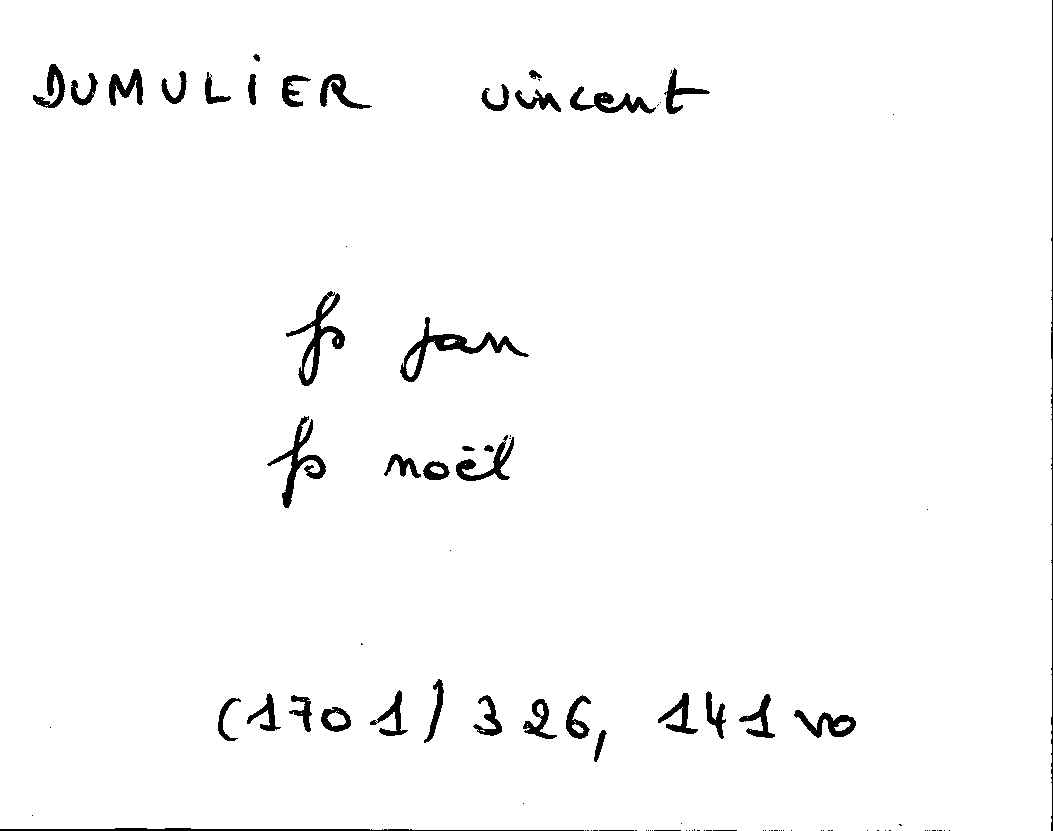 DUMULIER vincent
fs jan
fs noël
(1701) 326, 141 vo